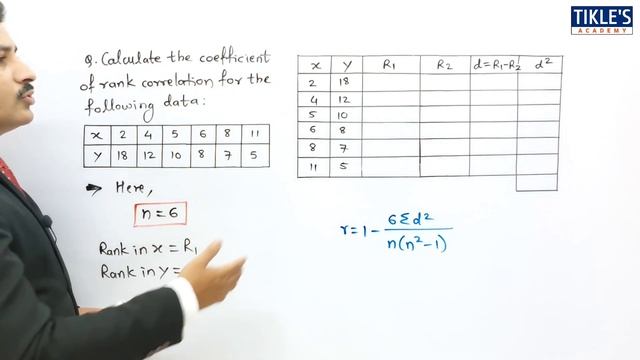 TIKLE'S
ACADEMY
Q. Calculate the coefficient
of rank correlation for the
following data:
x 2 4 5 6 8 11
y 18 12 10 8 7 5
Here,
n=6
Rank in x = R1
Rank in y =
x y R1 R2 d=R1-R2 d²
2 18
4 12
5 10
6 8
8 7
11 5
r = 1 - 6Σd² / n(n²-1)